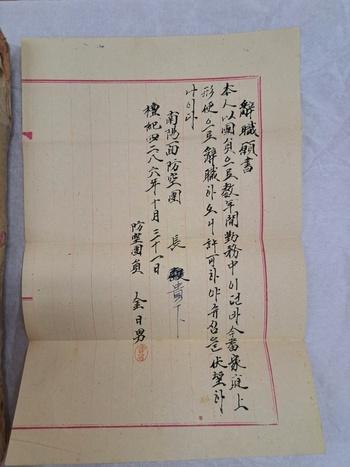 解職願書
本人以團員으로數年間勤務中이던바今番家庭上
形便으로解職하오니許可하야주심을伏望하
나이다
南陽面防空團長 貴下
檀紀四二八六年十月三十一日
防空團員 金日男